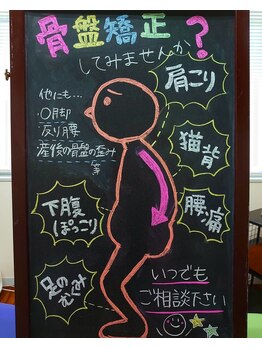 骨盤矯正?
してみませんか
他にも…
○脚
反り腰
産後の骨盤の歪み
等
肩こり
猫背
腰痛
下腹
ぽっこり
足の
むくみ
いつでも
ご相談下さい